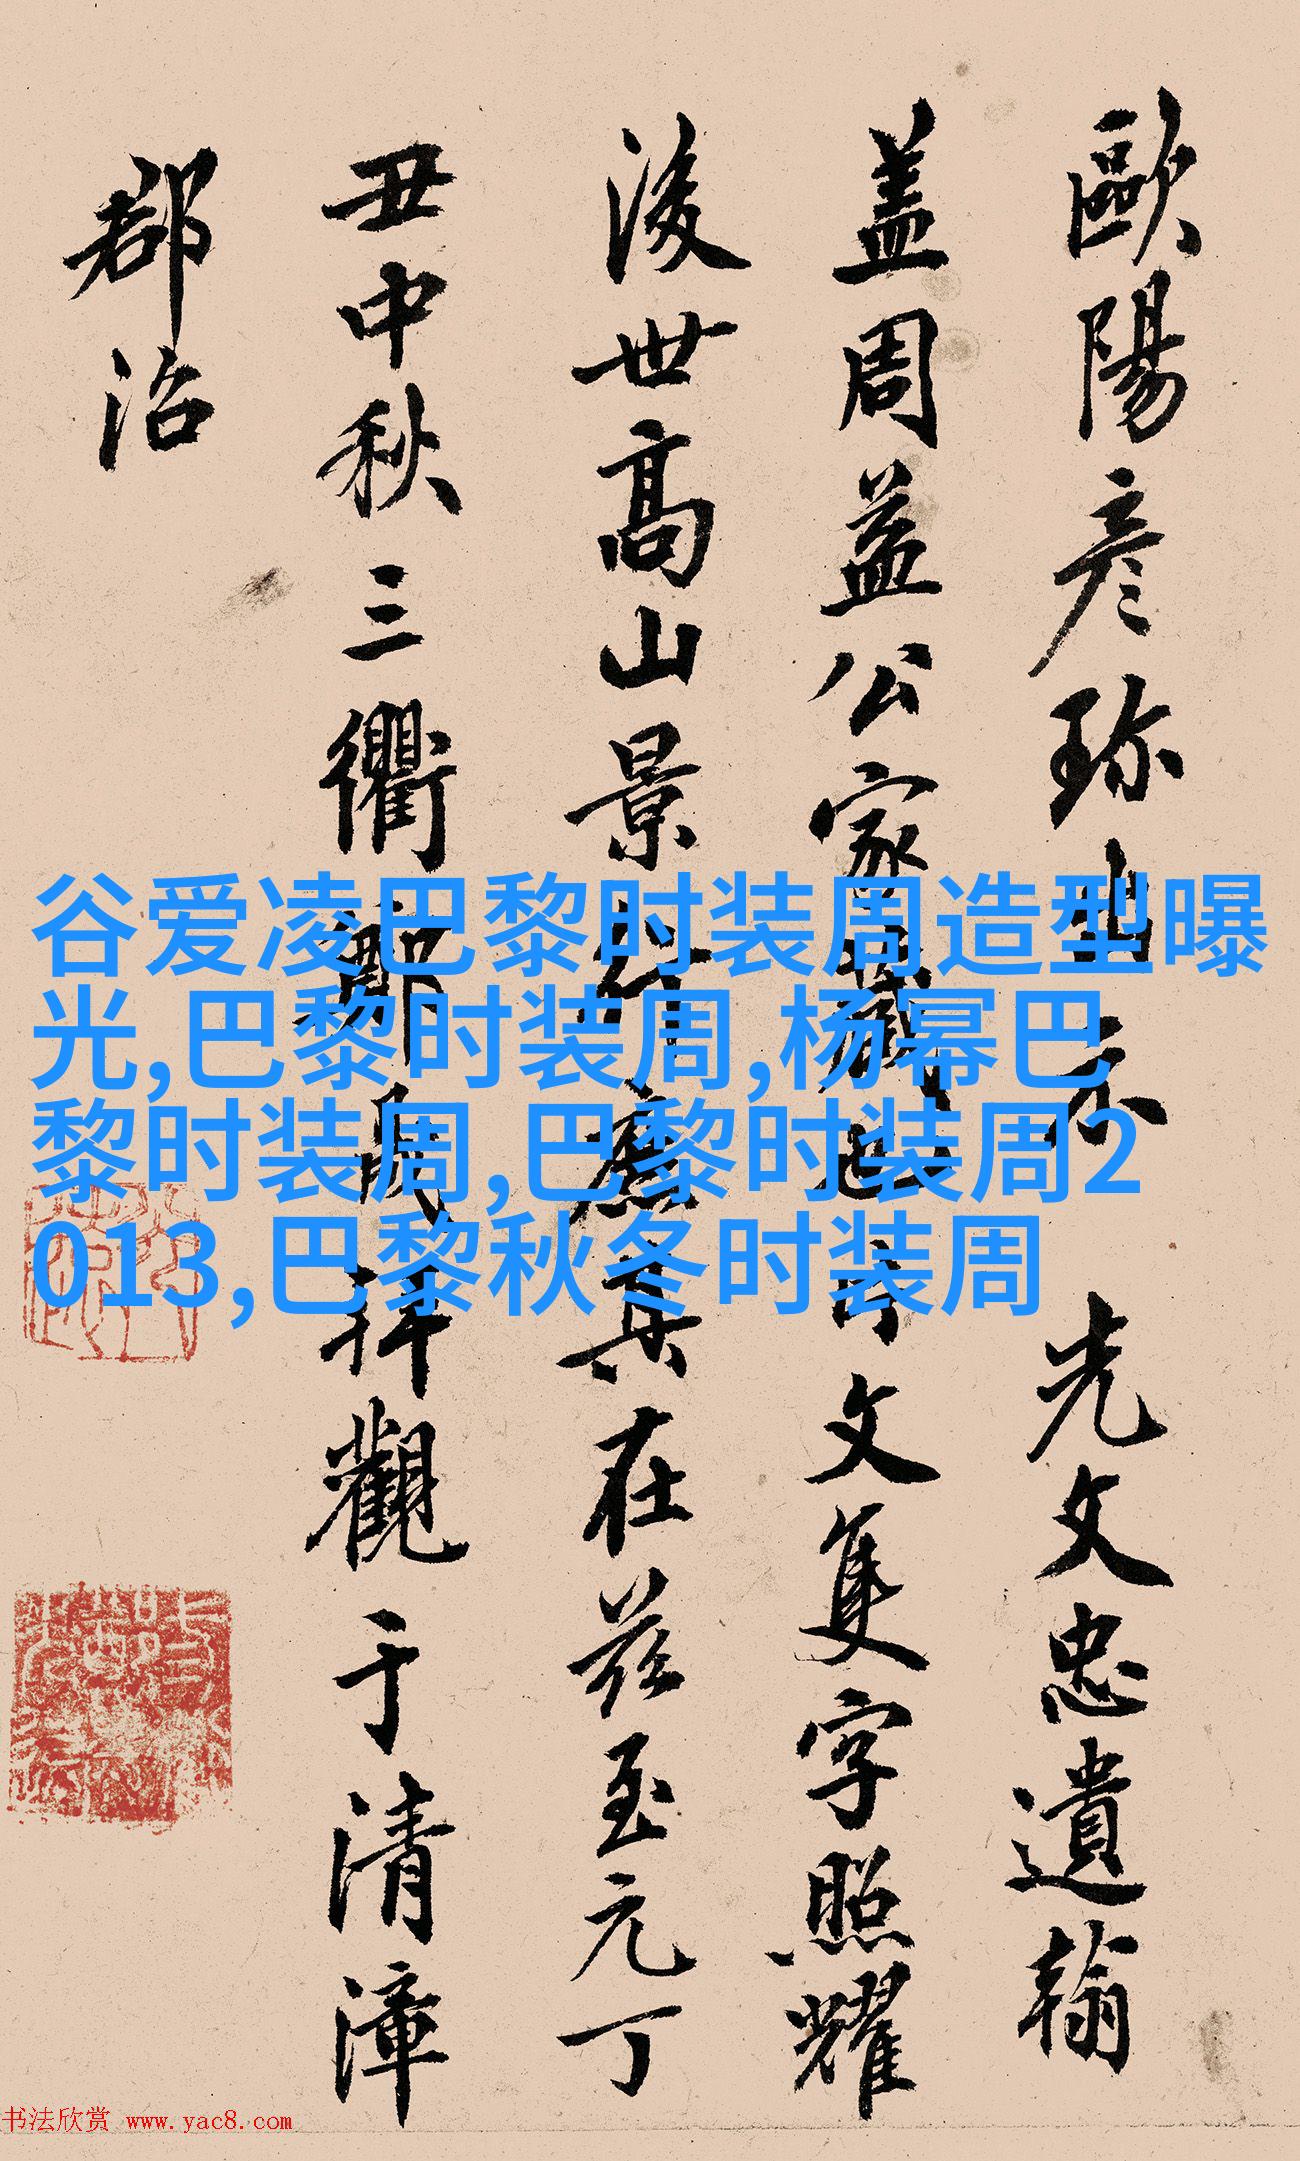 歐陽彦珎出示 先文忠遺翰
盖周益公家藏也片文隻字照耀
後世高山景行庶其在兹至元丁
丑中秋三衢鄭民拜觀于清漳
郡治
谷爱凌巴黎时装周造型曝
光,巴黎时装周,杨幂巴
黎时装周,巴黎时装周2
013,巴黎秋冬时装周
书法欣赏 www.yac8.com